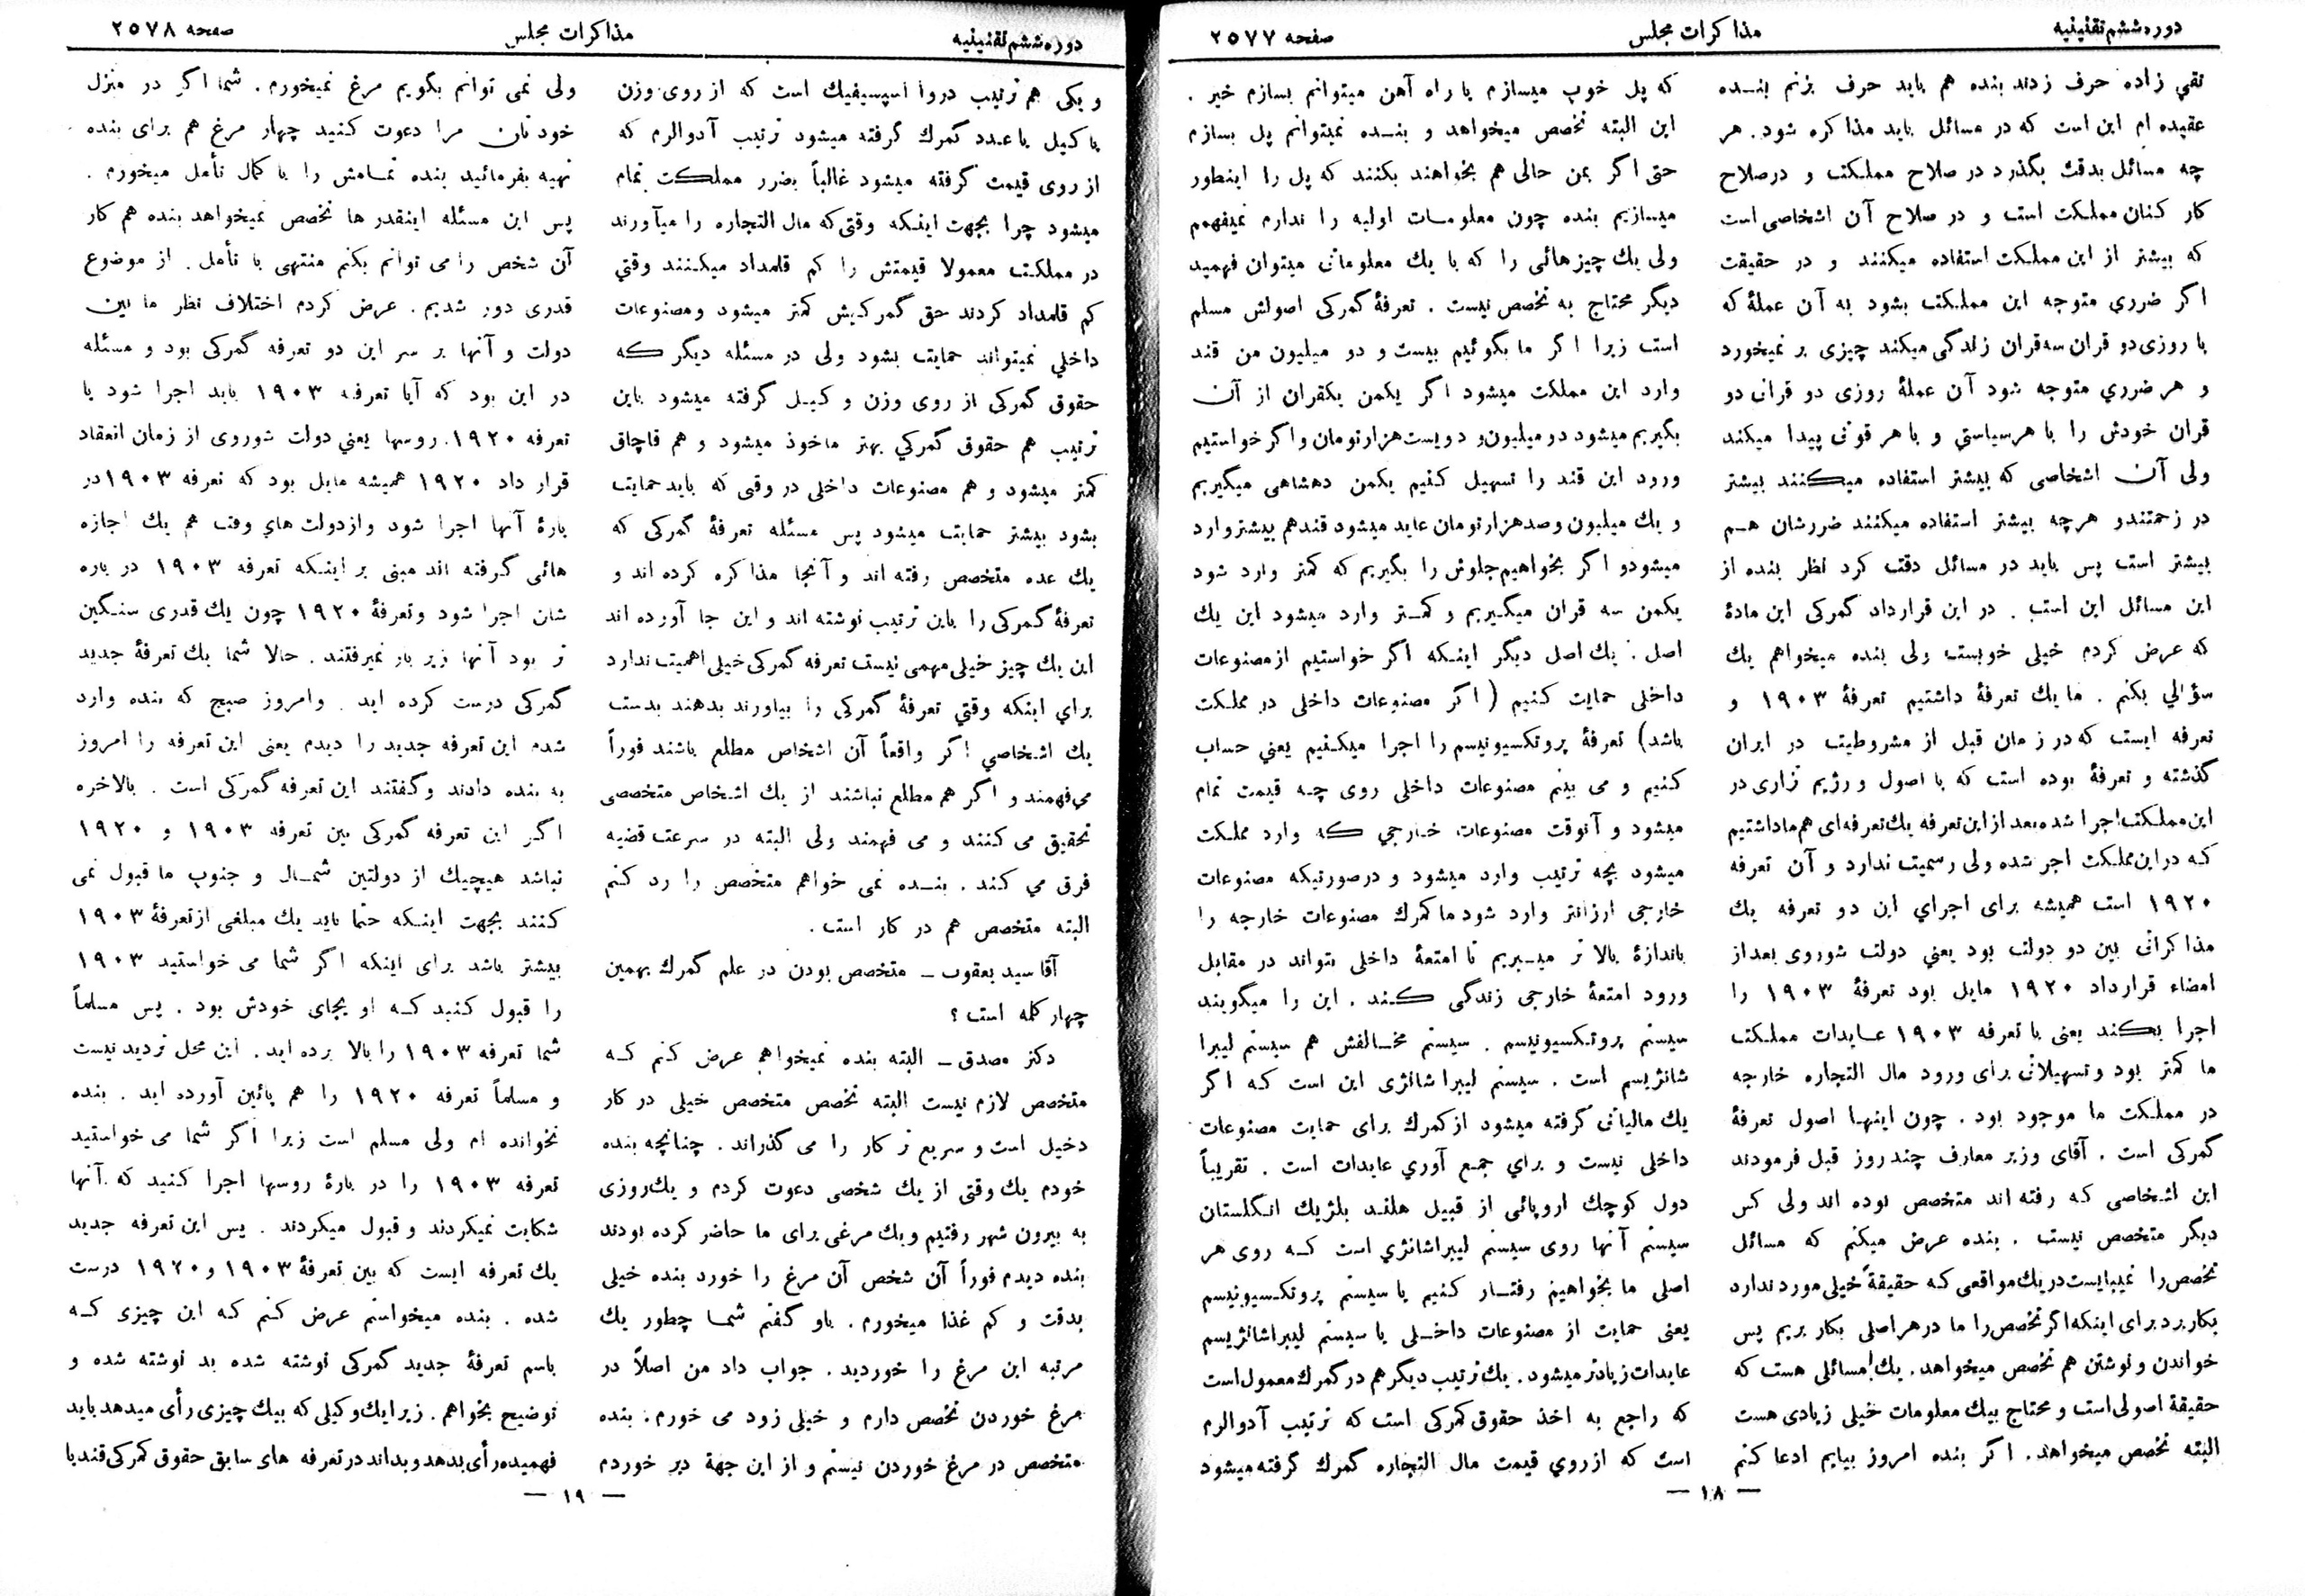 دوره ششم تقنینیه
مذاکرات مجلس
صفحه ۲۵۷۷
تقی زاده حرف زدند بنده هم باید حرف بزنم بنده
عقیده ام این است که در مسائل باید مذاکره شود. هر
چه مسائل بدقت بگذرد در صلاح مملکت و در صلاح
کار کنان مملکت است و در صلاح آن اشخاصی است
که بیشتر از این مملکت استفاده میکنند و در حقیقت
اگر ضرری متوجه این مملکت بشود به آن عملهٔ که
با روزی دو قران سه قران زندگی میکند چیزی بر نمیخورد
و هر ضرری متوجه شود آن عملهٔ روزی دو قرانی دو
قران خودش را با هر سیاستی و با هر قوتی پیدا میکند
ولی آن اشخاصی که بیشتر استفاده میکنند بیشتر
در زحمتند و هر چه بیشتر استفاده میکنند ضررشان هم
بیشتر است پس باید در مسائل دقت کرد نظر بنده از
این مسائل این است . در این قرارداد گمرکی این مادهٔ
که عرض کردم خیلی خوبست ولی بنده میخواهم یك
سؤالی بکنم . ما یك تعرفهٔ داشتیم تعرفهٔ ۱۹۰۳ و
تعرفه ایست که در زمان قبل از مشروطیت در ایران
گذشته و تعرفهٔ بوده است که با اصول و رژیم تزاری در
این مملکت اجرا شده بعد از این تعرفه یك تعرفه‌ای هم ما داشتیم
که در این مملکت اجر شده ولی رسمیت ندارد و آن تعرفه
۱۹۲۰ است همیشه برای اجرای این دو تعرفه یك
مذاکراتی بین دو دولت بود یعنی دولت شوروی بعد از
امضاء قرارداد ۱۹۲۰ مایل بود تعرفهٔ ۱۹۰۳ را
اجرا بکند یعنی با تعرفه ۱۹۰۳ عایدات مملکت
ما کمتر بود و تسهیلاتی برای ورود مال التجاره خارجه
در مملکت ما موجود بود . چون اینها اصول تعرفهٔ
گمرکی است . آقای وزیر معارف چند روز قبل فرمودند
این اشخاصی که رفته اند متخصص بوده اند ولی کس
دیگر متخصص نیست . بنده عرض میکنم که مسائل
تخصص را نمیبایست در یك مواقعی که حقیقةً خیلی مورد ندارد
بکار برد برای اینکه اگر تخصص را ما در هر اصلی بکار بریم پس
خواندن و نوشتن هم تخصص میخواهد. یك مسائلی هست که
حقیقة اصولی است و محتاج بیك معلومات خیلی زیادی هست
البته تخصص میخواهد. اگر بنده امروز بیایم ادعا کنم
که پل خوب میسازم یا راه آهن میتوانم بسازم خیر .
این البته تخصص میخواهد و بنده نمیتوانم پل بسازم
حتی اگر بمن حالی هم بخواهند بکنند که پل را اینطور
میسازیم بنده چون معلومات اولیه را ندارم نمیفهمم
ولی یك چیز هائی را که با یك معلوماتی میتوان فهمید
دیگر محتاج به تخصص نیست . تعرفهٔ گمرکی اصولش مسلم
است زیرا اگر ما بگوئیم بیست و دو میلیون من قند
وارد این مملکت میشود اگر یکمن یکقران از آن
بگیریم میشود دو میلیون و دویست هزار تومان و اگر خواستیم
ورود این قند را تسهیل کنیم یکمن دهشاهی میگیریم
و یك میلیون و صد هزار تومان عاید میشود قند هم بیشتر وارد
میشود و اگر بخواهیم جلوش را بگیریم که کمتر وارد شود
یکمن سه قران میگیریم و کمتر وارد میشود این یك
اصل . یك اصل دیگر اینکه اگر خواستیم از مصنوعات
داخلی حمایت کنیم ( اگر مصنوعات داخلی در مملکت
باشد) تعرفهٔ پروتکسیونیسم را اجرا میکنیم یعنی حساب
کنیم و می بینم مصنوعات داخلی روی چه قیمت تمام
میشود و آنوقت مصنوعات خارجی که وارد مملکت
میشود بچه ترتیب وارد میشود و در صورتیکه مصنوعات
خارجی ارزانتر وارد شود ما گمرك مصنوعات خارجه را
باندازهٔ بالا تر میبریم تا امتعهٔ داخلی بتواند در مقابل
ورود امتعهٔ خارجی زندگی کند . این را میگویند
سیستم پروتکسیونیسم . سیستم مخالفش هم سیستم لیبرا
شانژیسم است . سیستم لیبرا شانژی این است که اگر
یك مالیاتی گرفته میشود از گمرك برای حمایت مصنوعات
داخلی نیست و برای جمع آوری عایدات است . تقریباً
دول کوچك اروپائی از قبیل هلند بلژیك انگلستان
سیستم آنها روی سیستم لیبراشانژی است که روی هر
اصلی ما بخواهیم رفتار کنیم با سیستم پروتکسیونیسم
یعنی حمایت از مصنوعات داخلی یا سیستم لیبراشانژیسم
عایدات زیادتر میشود . یك ترتیب دیگر هم در گمرك معمول است
که راجع به اخذ حقوق گمرکی است که ترتیب آدوالرم
است که از روی قیمت مال التجاره گمرك گرفته میشود
— ۱۸ —
دوره ششم تقنینیه
مذاکرات مجلس
صفحه ۲۵۷۸
و یکی هم ترتیب دروا اسپسیفیك است که از روی وزن
یا کیل یا عدد گمرك گرفته میشود ترتیب آدوالرم که
از روی قیمت گرفته میشود غالباً بضرر مملکت تمام
میشود چرا بجهت اینکه وقتی که مال التجاره را میآورند
در مملکت معمولا قیمتش را کم قلمداد میکنند وقتی
کم قلمداد کردند حق گمرکیش کمتر میشود و مصنوعات
داخلی نمیتواند حمایت بشود ولی در مسئله دیگر که
حقوق گمرکی از روی وزن و کیل گرفته میشود باین
ترتیب هم حقوق گمرکی بهتر ماخوذ میشود و هم قاچاق
کمتر میشود و هم مصنوعات داخلی در وقتی که باید حمایت
بشود بیشتر حمایت میشود پس مسئله تعرفهٔ گمرکی که
یك عده متخصص رفته اند و آنجا مذاکره کرده اند و
تعرفهٔ گمرکی را باین ترتیب نوشته اند و این جا آورده اند
این یك چیز خیلی مهمی نیست تعرفه گمرکی خیلی اهمیت ندارد
برای اینکه وقتی تعرفهٔ گمرکی را بیاورند بدهند بدست
یك اشخاصی اگر واقعاً آن اشخاص مطلع باشند فوراً
می‌فهمند و اگر هم مطلع نباشند از یك اشخاص متخصصی
تحقیق می کنند و می فهمند ولی البته در سرعت قضیه
فرق می کند . بنده نمی خواهم متخصص را رد کنم
البته متخصص هم در کار است .
آقا سید یعقوب ــ متخصص بودن در علم گمرك بهمین
چهار کلمه است ؟
دکتر مصدق ــ البته بنده نمیخواهم عرض کنم که
متخصص لازم نیست البته تخصص متخصص خیلی در کار
دخیل است و سریع تر کار را می گذراند . چنانچه بنده
خودم یك وقتی از یك شخصی دعوت کردم و یك روزی
به بیرون شهر رفتیم و یك مرغی برای ما حاضر کرده بودند
بنده دیدم فوراً آن شخص آن مرغ را خورد بنده خیلی
بدقت و کم غذا میخورم . باو گفتم شما چطور یك
مرتبه این مرغ را خوردید . جواب داد من اصلاً در
مرغ خوردن تخصص دارم و خیلی زود می خورم . بنده
متخصص در مرغ خوردن نیستم و از این جهة دیر خوردم
ولی نمی توانم بگویم مرغ نمیخورم . شما اگر در منزل
خودتان مرا دعوت کنید چهار مرغ هم برای بنده
تهیه بفرمائید بنده تمامش را با کمال تأمل میخورم .
پس این مسئله اینقدر ها تخصص نمیخواهد بنده هم کار
آن شخص را می توانم بکنم منتهی با تأمل . از موضوع
قدری دور شدیم . عرض کردم اختلاف نظر ما بین
دولت و آنها بر سر این دو تعرفه گمرکی بود و مسئله
در این بود که آیا تعرفه ۱۹۰۳ باید اجرا شود یا
تعرفه ۱۹۲۰. روسها یعنی دولت شوروی از زمان انعقاد
قرار داد ۱۹۲۰ همیشه مایل بود که تعرفه ۱۹۰۳ در
بارهٔ آنها اجرا شود و از دولت های وقت هم یك اجازه
هائی گرفته اند مبنی بر اینکه تعرفه ۱۹۰۳ در باره
شان اجرا شود و تعرفهٔ ۱۹۲۰ چون یك قدری سنگین
تر بود آنها زیر بار نمیرفتند . حالا شما یك تعرفهٔ جدید
گمرکی درست کرده اید . و امروز صبح که بنده وارد
شدم این تعرفه جدید را دیدم یعنی این تعرفه را امروز
به بنده دادند و گفتند این تعرفه گمرکی است . بالاخره
اگر این تعرفه گمرکی بین تعرفه ۱۹۰۳ و ۱۹۲۰
نباشد هیچیك از دولتین شمال و جنوب ما قبول نمی
کنند بجهت اینکه حتما باید یك مبلغی از تعرفهٔ ۱۹۰۳
بیشتر باشد برای اینکه اگر شما می خواستید ۱۹۰۳
را قبول کنید که او بجای خودش بود . پس مسلماً
شما تعرفه ۱۹۰۳ را بالا برده اید . این محل تردید نیست
و مسلماً تعرفه ۱۹۲۰ را هم پائین آورده اید . بنده
نخوانده ام ولی مسلم است زیرا اگر شما می خواستید
تعرفه ۱۹۰۳ را در بارهٔ روسها اجرا کنید که آنها
شکایت نمیکردند و قبول میکردند . پس این تعرفه جدید
یك تعرفه ایست که بین تعرفهٔ ۱۹۰۳ و ۱۹۲۰ درست
شده . بنده میخواستم عرض کنم که این چیزی که
باسم تعرفهٔ جدید گمرکی نوشته شده بد نوشته شده و
توضیح بخواهم . زیرا یك وکیلی که بیك چیزی رأی میدهد باید
فهمیده رأی بدهد و بداند در تعرفه های سابق حقوق گمرکی قند با
— ۱۹ —